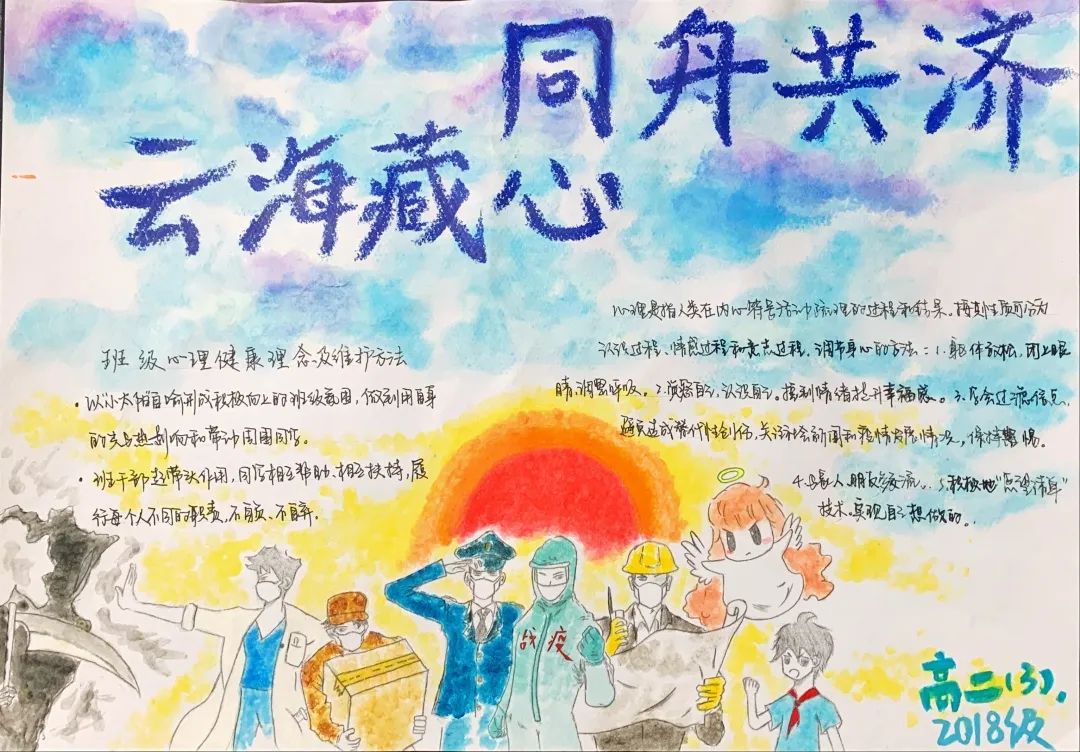 同舟共济
云海藏心
班级心理健康理念及维护方法
·以小太阳自喻形成积极向上的班级氛围,做到用自身
的光与热影响和带动周围同学。
·班干部起带头作用,同学相互帮助、相互扶持,履
行每个人不同的职责,不抛、不弃。
心理是指人类在内心符号活动梳理的过程和结果。按其性质可分为
认识过程、情感过程和意志过程。调节身心的方法:1.躯体放松,闭上眼
睛,调整呼吸。2.洞察自己,认识自己。接到情绪提升幸福感。3.学会过滤信息,
避免造成替代性创伤,关注新闻和疫情发展情况,保持警惕。
4.与家人、朋友多交流。5.积极地
技术。实现自己想做的。
战疫
高二(3).
2018级